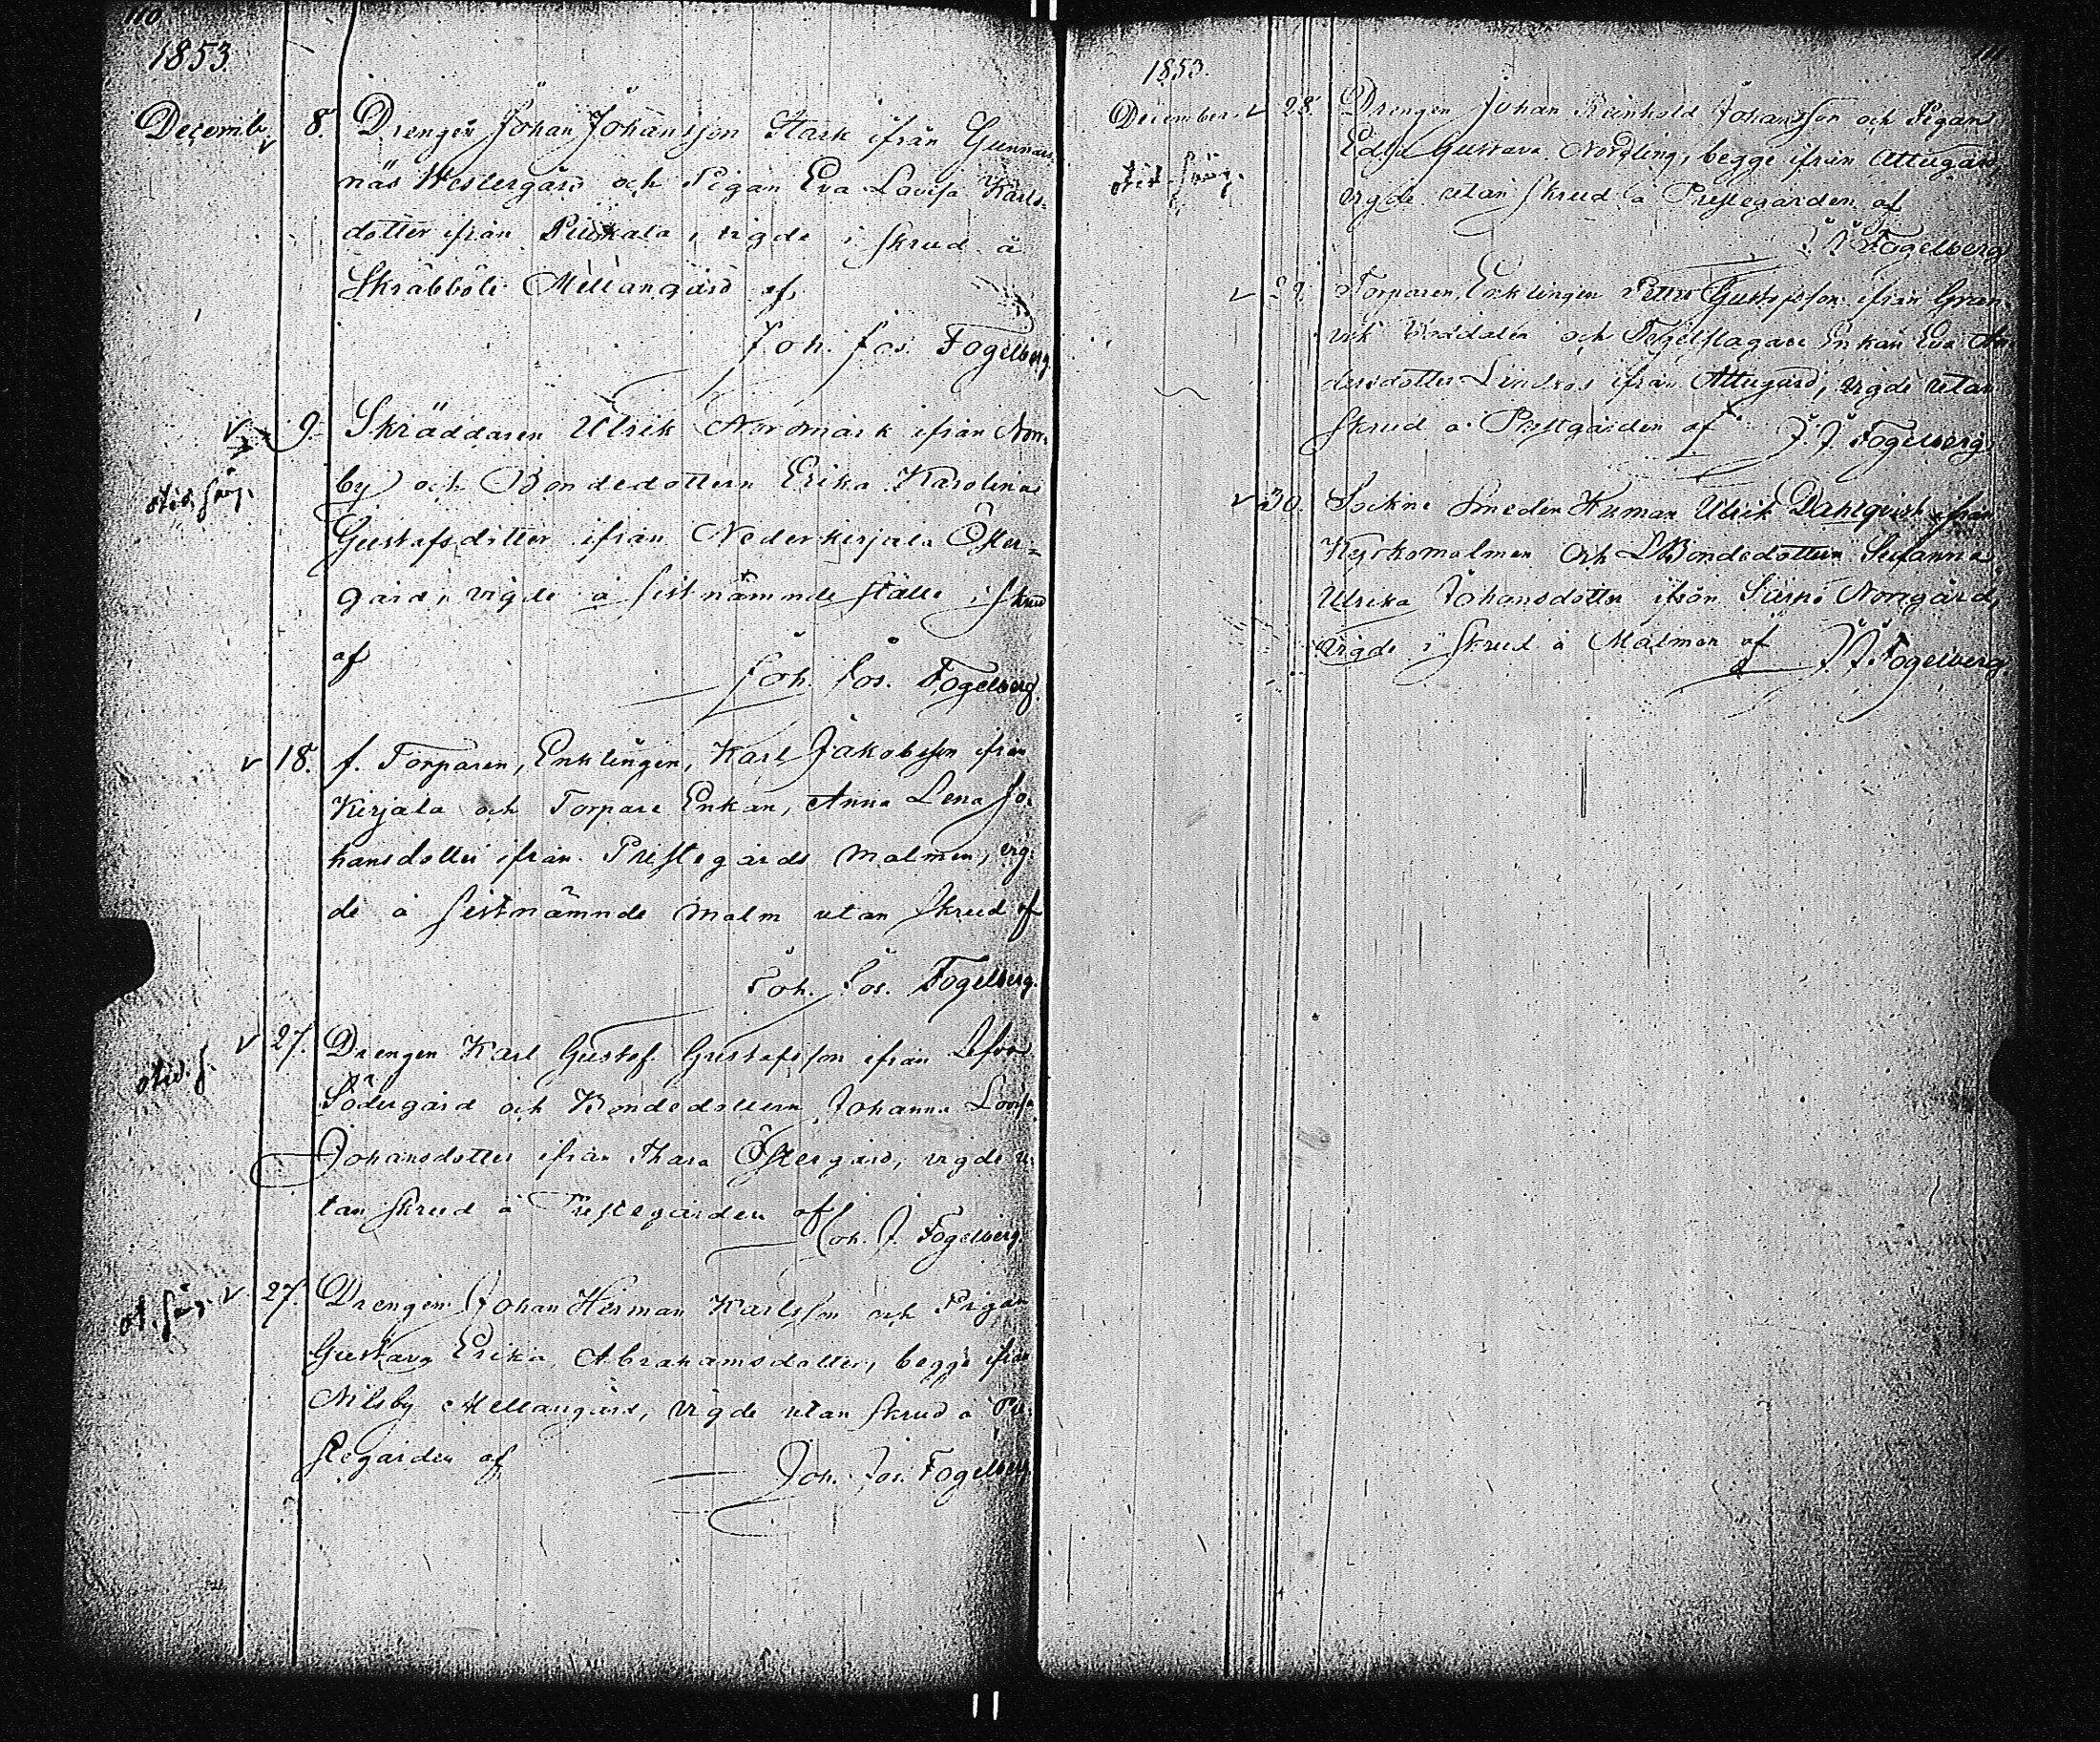 110
1853.
Decemb. v 8. Drengen Johan Johansson Stark ifrån Gunnars-
näs Westergård och Pigan Eva Lovisa Karls-
dotter ifrån Piukala, vigde i skrud å
Skräbböle Mellangård af
Joh. Jos. Fogelberg.
v 9. Skräddaren Ulrik Nordmark ifrån Norr-
by och Bondedottern Erika Karolina
Gustafsdotter ifrån Nederkirjala Öster-
gård, vigde å sistnämnde ställe i skrud
af
Joh. Jos. Fogelberg.
v 18. f. Torparen, Enklingen, Karl Jakobsson ifrån
Kirjala och Torpare Enkan, Anna Lena Jo-
hansdotter ifrån Prestegårds malmen, vig-
de å sistnämnde malm utan skrud af
Joh. Jos. Fogelberg.
v 27. Drengen Karl Gustaf Gustafsson ifrån
Södergård och Bondedottern Johanna Lovisa
Johansdotter ifrån Östergård, vigde u-
tan skrud å Prestegården af
Joh. J. Fogelberg.
v 27. Drengen Johan Herman Karlsson och Pigan
Gustava Erika Abrahamsdotter, begge ifrån
Nilsby Mellangård, vigde utan skrud å Pre-
stegården af
Joh. Jos. Fogelberg.
111
1853.
December v 28. Drengen Johan Reinhold Johansson och Pigan
Edla Gustava Nordling, begge ifrån Attugård,
vigde utan skrud å Prestegården af
J. J. Fogelberg
v 29. Torparen, Enklingen Petter Gustafsson ifrån Gran-
vik och Tegelslagare Enkan Eva An-
dersdotter Lindros ifrån Attugård, vigde utan
skrud å Prestgården af J. J. Fogelberg.
v 30. Sockne Smeden Herman Ulrik Dahlqvist ifrån
Kyrkomalmen och Bondedottern Susanna
Ulrika Johansdotter ifrån Särpö Norrgård,
vigde i skrud å Malmen af J. J. Fogelberg.